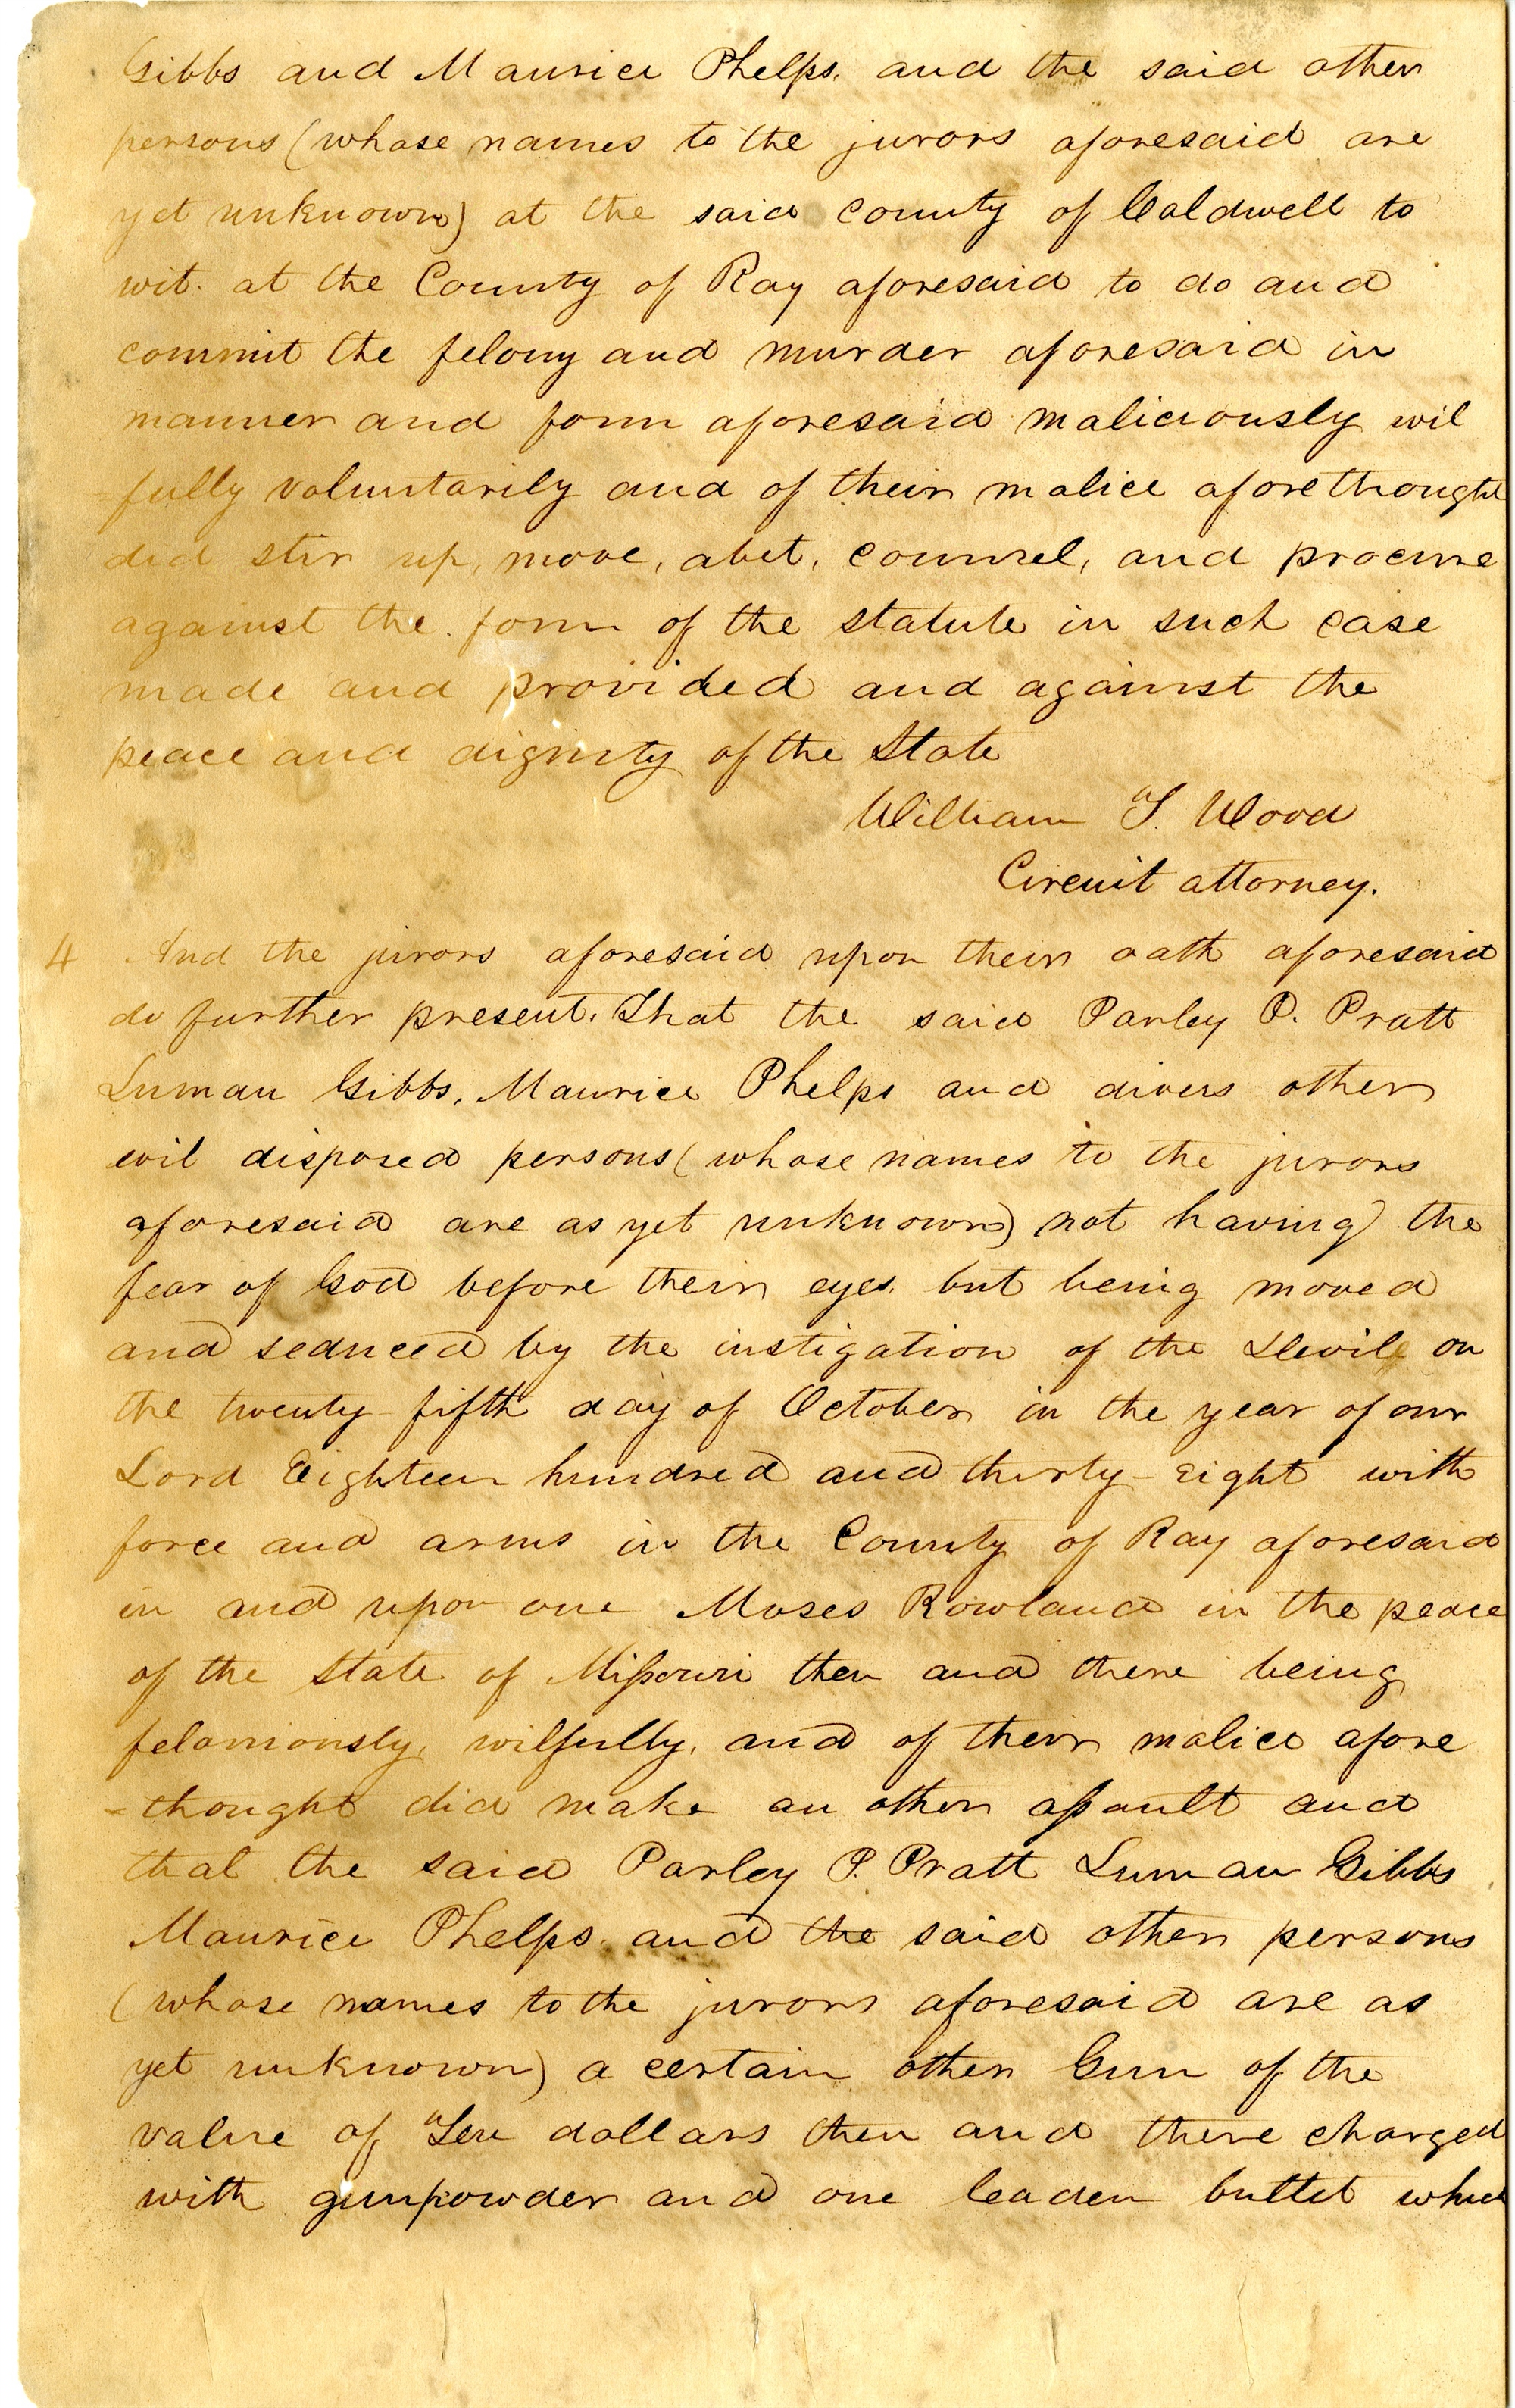 Gibbs and Maurice Phelps. and the said other
persons (whose names to the jurors aforesaid are
yet unknown) at the said County of Caldwell to
wit. at the County of Ray aforesaid to do and
commit the felony and murder aforesaid in
manner and form aforesaid maliciously wil
=fully voluntarily and of their malice aforethought
did stir up, move, abet, counsel, and procure
against the form of the statute in such case
made and provided and against the
peace and dignity of the State
William T. Wood
Circuit attorney.
4 And the jurors aforesaid upon their oath aforesaid
do further present. That the said Parley P. Pratt
Luman Gibbs, Maurice Phelps and divers other
evil disposed persons (whose names to the jurors
aforesaid are as yet unknown) not having the
fear of God before their eyes. but being moved
and seduced by the instigation of the Devile on
the twenty-fifth day of October in the year of our
Lord Eighteen hundred and thirty-eight with
force and arms in the County of Ray aforesaid
in and upon one Moses Rowland in the peace
of the State of Missouri then and there being
feloniously, wilfully, and of their malice afore
=thought did make an other assault and
that the said Parley P. Pratt Luman Gibbs
Maurice Phelps and the said other persons
(whose names to the jurors aforesaid are as
yet unknown) a certain other Gun of the
value of Ten dollars then and there charged
with gunpowder and one leaden bullet which